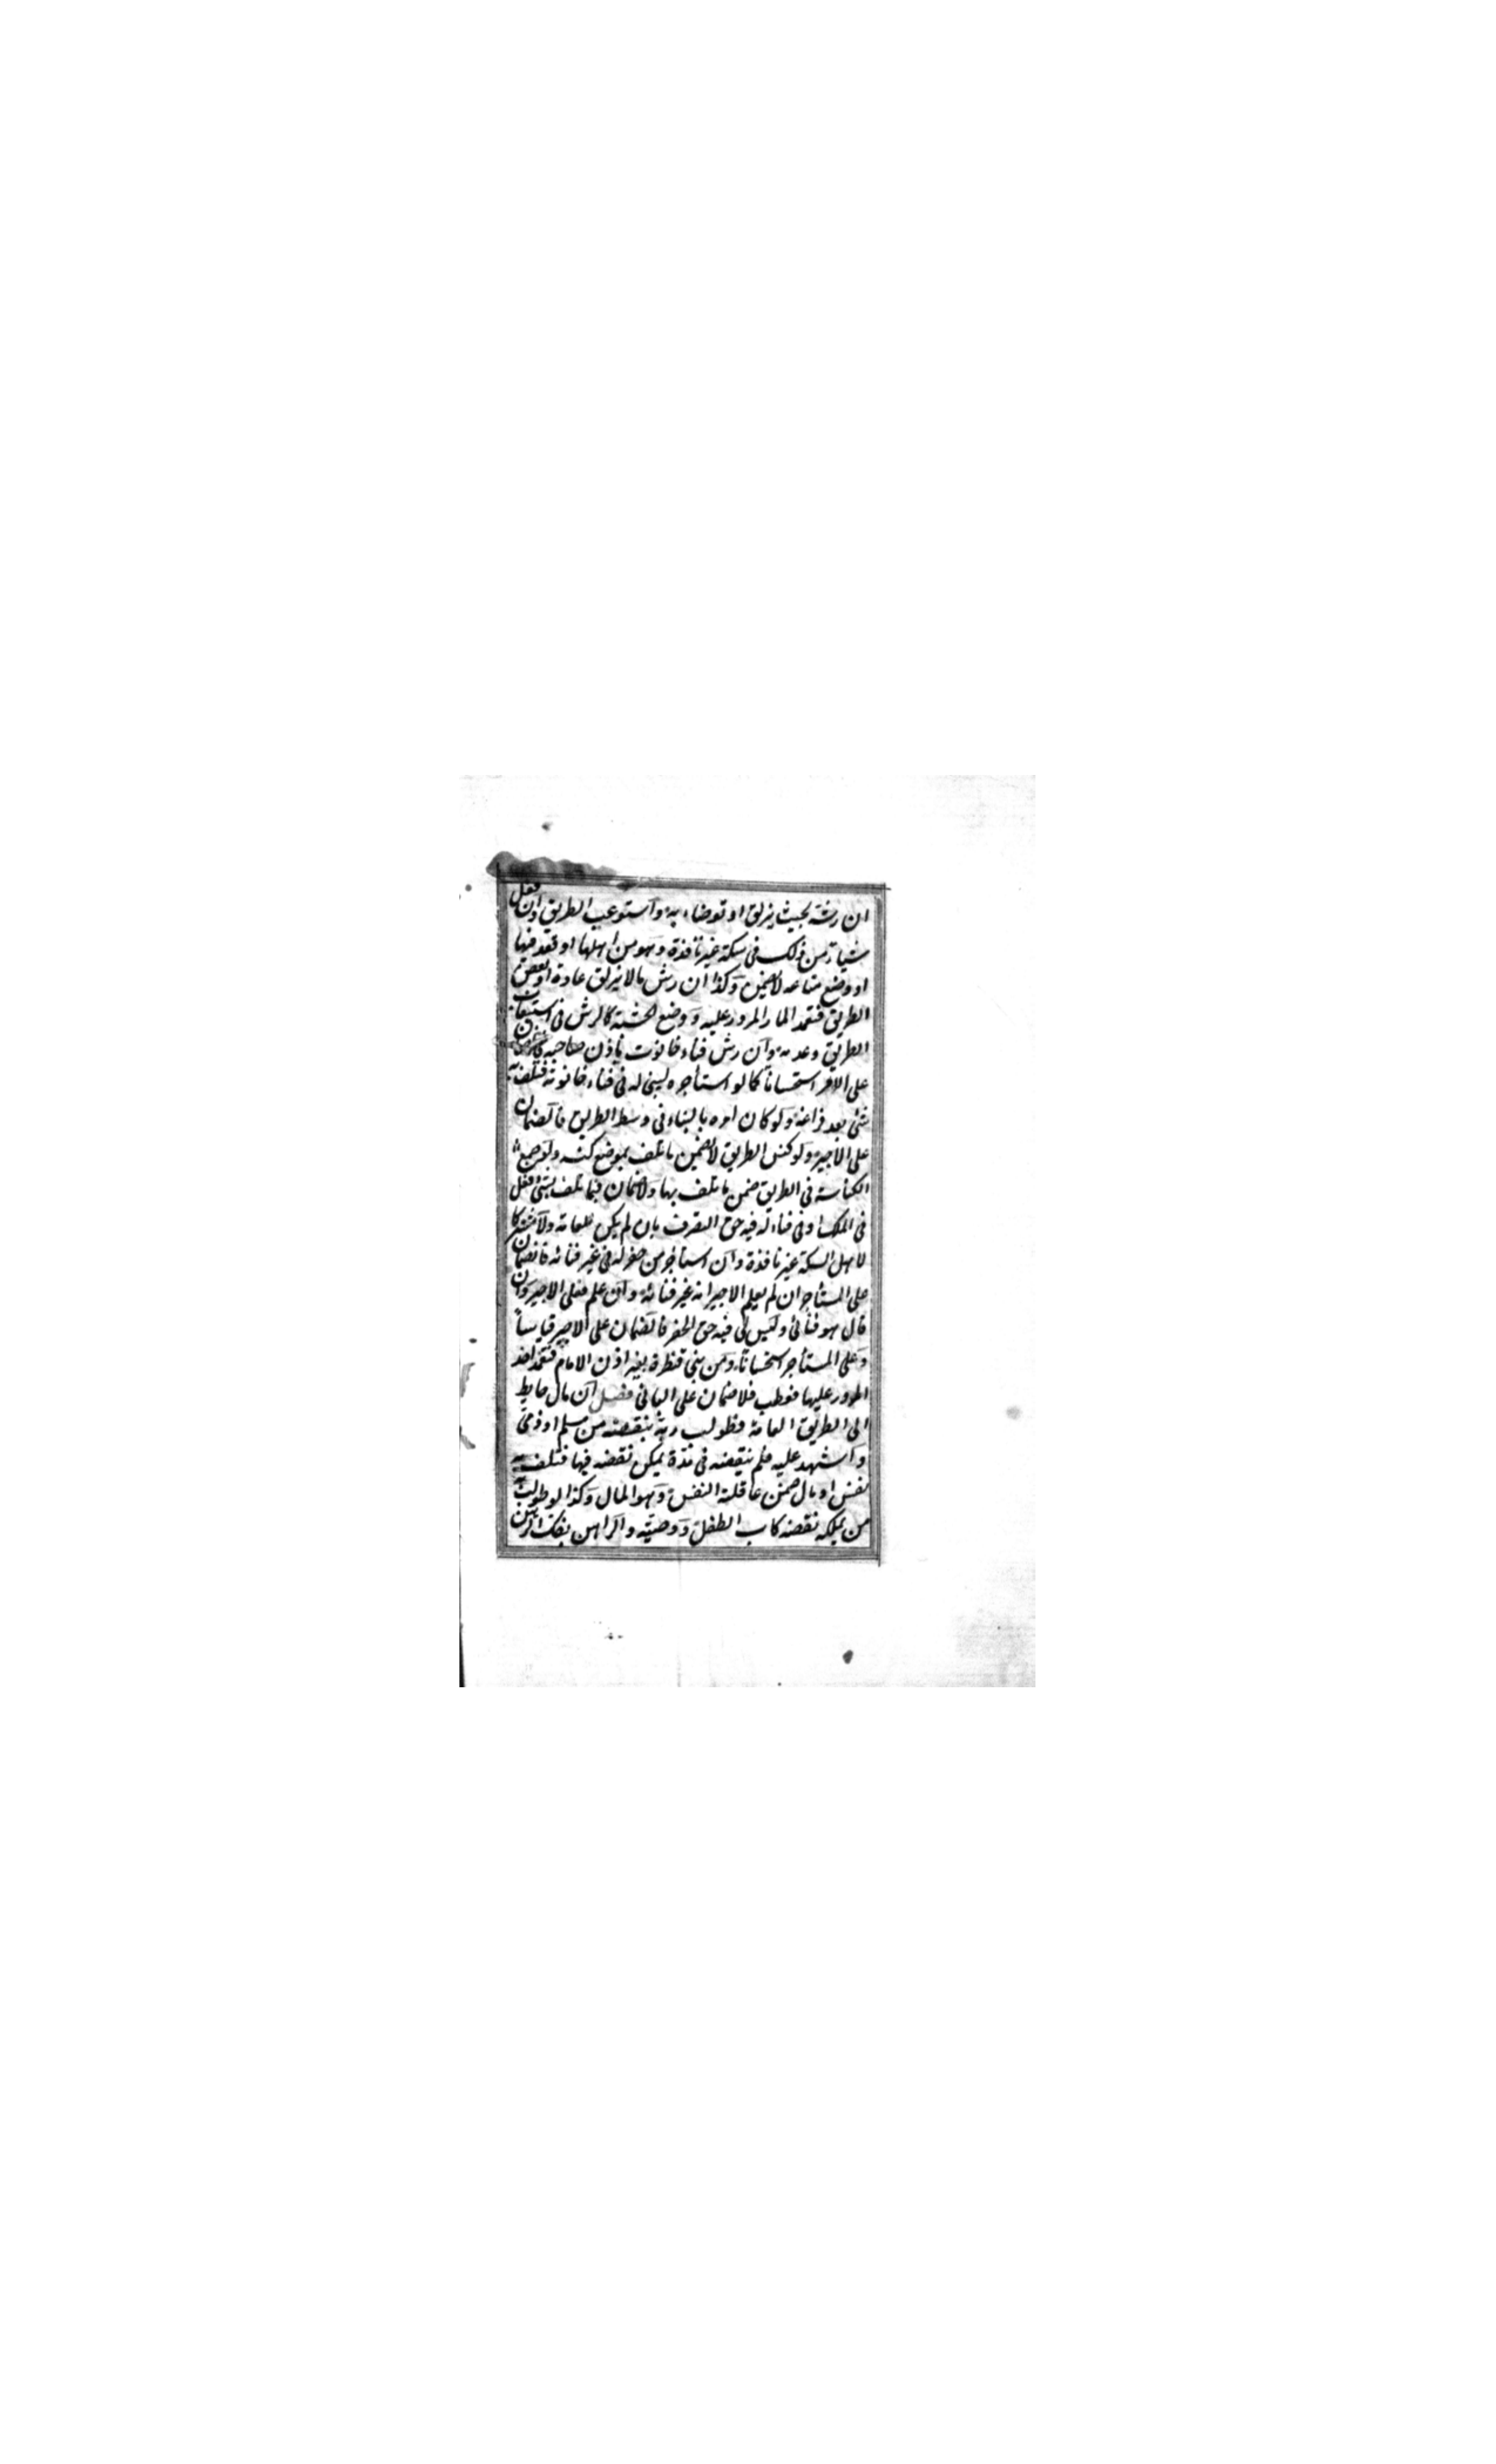 ان رشه بحيث يزلق او توضاء به واستوعب الطريق وان فعل
شيئا من ذلك في سكة غير نافذة وهو من اهلها او قعد فيها
او وضع متاعه لا يضمن وكذا ان رش مالا يزلق عادة او بعض
الطريق فتعمد المار المرور عليه ووضع الخشبة كالرش في استيعاب
الطريق وعدمه وان رش فناء حانوت باذن صاحبه فالضمان
على الامر استحسانا كما لو استأجره ليبني له في فناء حانوته فتلف به
شئ بعد فراغه ولو كان امره بالبناء في وسط الطريق فالضمان
على الاجير ولو كنس الطريق لا يضمن ما تلف بموضع كنسه ولو جمع
الكناسة في الطريق ضمن ما تلف بها ولا ضمان فيما تلف بشئ فعل
في الملك او في فناء له فيه حق التصرف بان لم يكن للعامة ولا مشتركا
لاهل السكة غير نافذة وان استأجر من حفر له في غير فنائه فالضمان
على المستأجر ان لم يعلم الاجير انه غير فنائه وان علم فعلى الاجير وان
قال هو فنائي وليس لي فيه حق الحفر فالضمان على الاجير قياسا
وعلى المستأجر استحسانا ومن بنى قنطرة بغير اذن الامام فتعمد احد
المرور عليها فعطب فلا ضمان على الباني فصل ان مال حايط
الى الطريق العامة فطولب ربه بنقضه من مسلم او ذمي
واشهد عليه فلم ينقضه في مدة يمكن نقضه فيها فتلف به
نفس او مال ضمن عاقلته النفس وهو المال وكذا لو طولب به
من يملك نقضه كاب الطفل ووصيه والراهن بفك الرهن